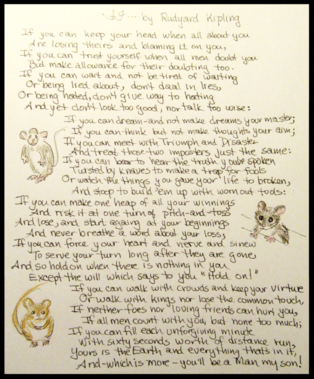 If... by Rudyard Kipling
If you can keep your head when all about you
Are losing theirs and blaming it on you,
If you can trust yourself when all men doubt you
But make allowance for their doubting too.
If you can wait and not be tired of waiting
Or being lied about, don't deal in lies,
Or being hated, don't give way to hating
And yet don't look too good, nor talk too wise:
If you can dream-and not make dreams your master;
If you can think-but not make thoughts your aim;
If you can meet with Triumph and Disaster
And treat those two imposters just the same:
If you can bear to hear the truth you've spoken
Twisted by knaves to make a trap for fools
Or watch the things you gave your life to broken,
And stoop to build 'em up with worn out tools:
If you can make one heap of all your winnings
And risk it at one turn of pitch-and-toss
And lose, and start again at your beginnings
And never breathe a word about your loss;
If you can force your heart and nerve and sinew
To serve your turn long after they are gone,
And so hold on when there is nothing in you
Except the will which says to you "Hold on!"
If you can walk with crowds and keep your virtue
Or walk with kings nor lose the common touch,
If neither foes nor loving friends can hurt you
If all men count with you, but none too much;
If you can fill each unforgiving minute
With sixty seconds worth of distance run,
Yours is the Earth and everything that's in it,
And-which is more-you'll be a Man, my son!